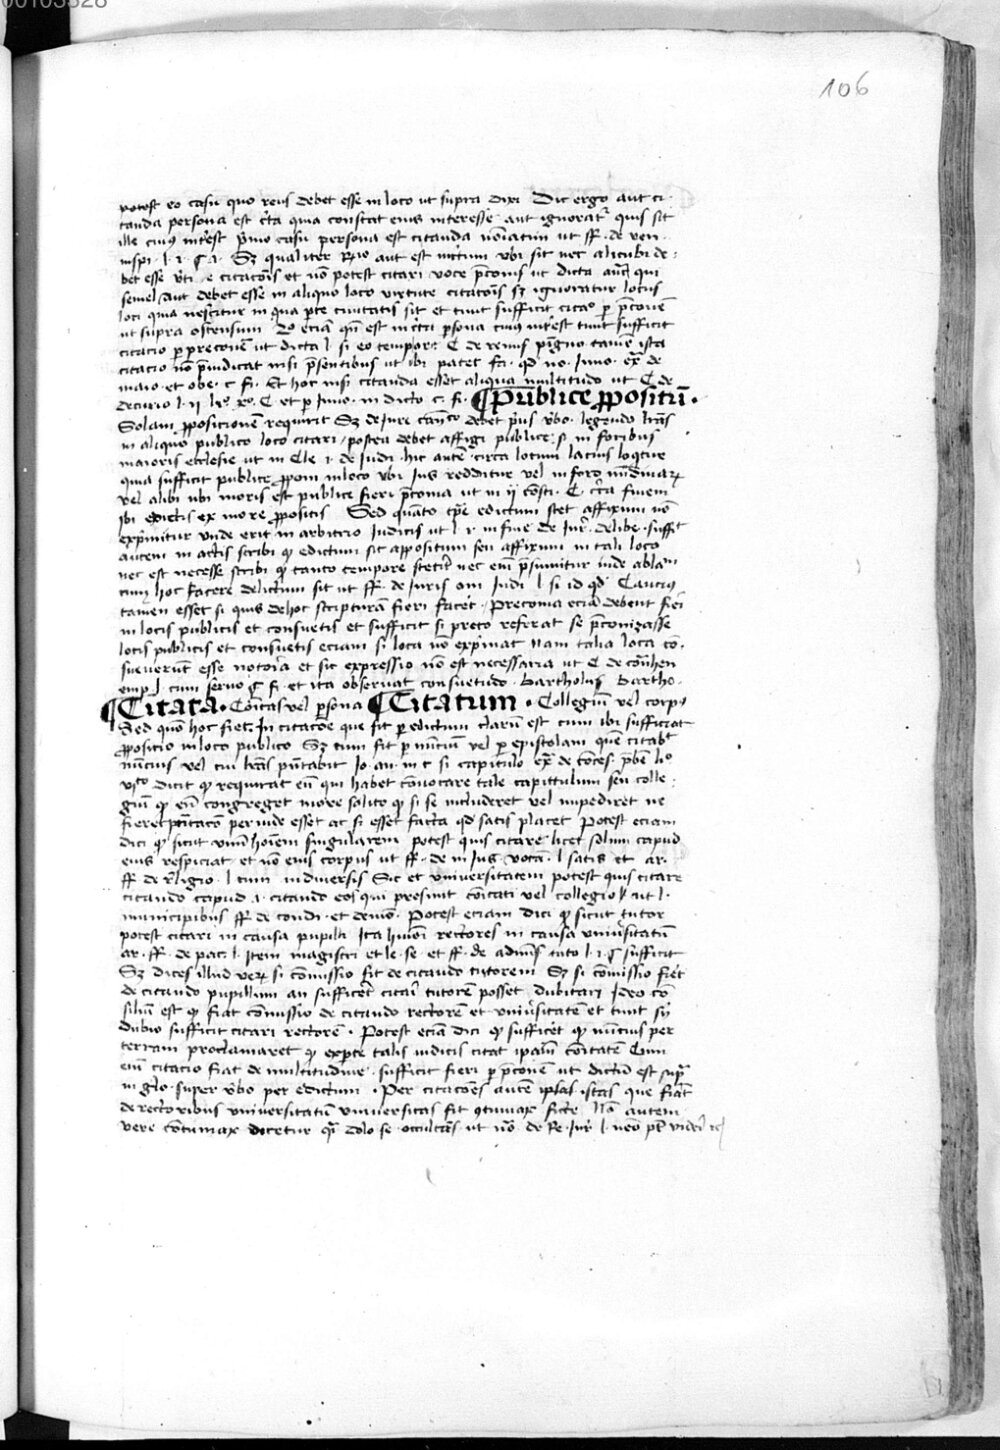 00103328
106
potest eo casu quo reus debet esse in loco ut supra dixi Dic ergo aut ci
tanda persona est certa quia constat eius interesse aut ignoratr quis sit
ille cuius interest primo casu persona est citanda nominatim ut ff. de ven.
inspi. l. 1. § 1. Sz qualiter aut est incertum ubi sit nec alicubi de
bet esse citacois et non potest citari voce preconis ut dicta qui
semel Aut debet esse in aliquo loco virtute citacois sz ignoratur locus
loci quia nescitur in qua parte civitatis sit et tunc sufficit citacio per preconem
ut supra ostensum eciam quando est incerti persona cuius interest tunc sufficit
citacio per preconem ut dicta l si eo tempore C de remis pignо tamen ista
citacio non preiudicat nisi presentibus ut ibi patet
maio. et obe. c fi. Et hoc nisi citanda esset aliqua multitudo ut C. de
decurio l. ii et per Inno. in dicto c. fi. ¶ Publice ppositum.
Solam pposicionem requirit Sz de iure debet prius verbo. legendo literas
in aliquo publico loco citari / postea debet affigi publice: in foribus
maioris ecclesie ut in Cle 1. de Iudi. hic autem circa locum lacius loquitur
quia sufficit publice pponi in loco ubi ius redditur vel in foro
vel alibi ubi moris est publice fieri preconia ut in ii circa finem
ibi edictis ex more ppositis Sed quanto tempore edictum stet affixum non
exprimitur unde erit in arbitrio Iudicis ut l. 1. in fine de Iure delibe. suffit
autem in actis scribi qz edictum sit appositum seu affixum in tali loco
nec est necesse scribi qz tanto tempore steterit nec enim presumitur inde ablatum
cum hoc facere delictum sit ut ff. de iuris om Iudi l si id qd Caucius
tamen esset si quis de hoc scripturam fieri faceret. Preconia eciam debent fieri
in locis publicis et consuetis et sufficit si preco referat se preconizasse
locis publicis et consuetis eciam si loca non exprimat nam talia loca con
sueverunt esse notoria et sic expressio non est necessaria ut C de
emp l. cum servo § fi. et ita observat consuetudo. Bartholus Bartho.
¶ Citata. Coitas vel persona ¶ Citatum. Collegium vel corps
Sed quomodo hoc fiet. In citacione que fit per edictum clarum est cum ibi sufficiat
ppositio in loco publico Sz cum fit per nuncium vel per epistolam quem citabit
nuncius vel cui literas presentabit Io. an. in c si capitulo
dicit qz requirat eum qui habet convocare tale capittulum seu colle
gium qz eum congreget more solito qz si se includeret vel impediret ne
fieret perinde esset ac si esset facta qd satis placet Potest eciam
dici qz sicut unum hominem singularem potest quis citare licet solum capud
eius respiciat et non eius corpus ut ff. de in ius voca. l satis et ar.
ff de religio. l cum in diversis Sic et universitatem potest quis citare
citando capud .i. citando eos qui presunt coitati vel collegio ut l.
municipibus ff de condi. et demon. Potest eciam dici qz sicut tutor
potest citari in causa pupilli Ita huiusmodi rectores in causa universitatum
ar. ff. de paci l. item magistri et le. se. et ff. de adminis tuto l. 1. § sufficit
Sz dices illud verum si comissio fit de citando tutorem Sz si comissio fieret
de citando pupillum an sufficeret citari tutorem posset dubitari Ideo con
silium est qz fiat comissio de citando rectorem et universitatem et tunc sine
dubio sufficit citari rectorem. Potest eciam dici qz sufficeret qz nuncius per
terram proclamaret qz ex parte talis iudicis citat ipsam coitatem Cum
enim citacio fiat de multitudine. sufficit fieri per preconem ut dictum est supra
in glo. super verbo per edictum. Per citaciones autem istas que fiunt
de rectoribus universitatum universitas fit contumax ficte Non autem
vere contumax dicetur quia dolo se occultans ut